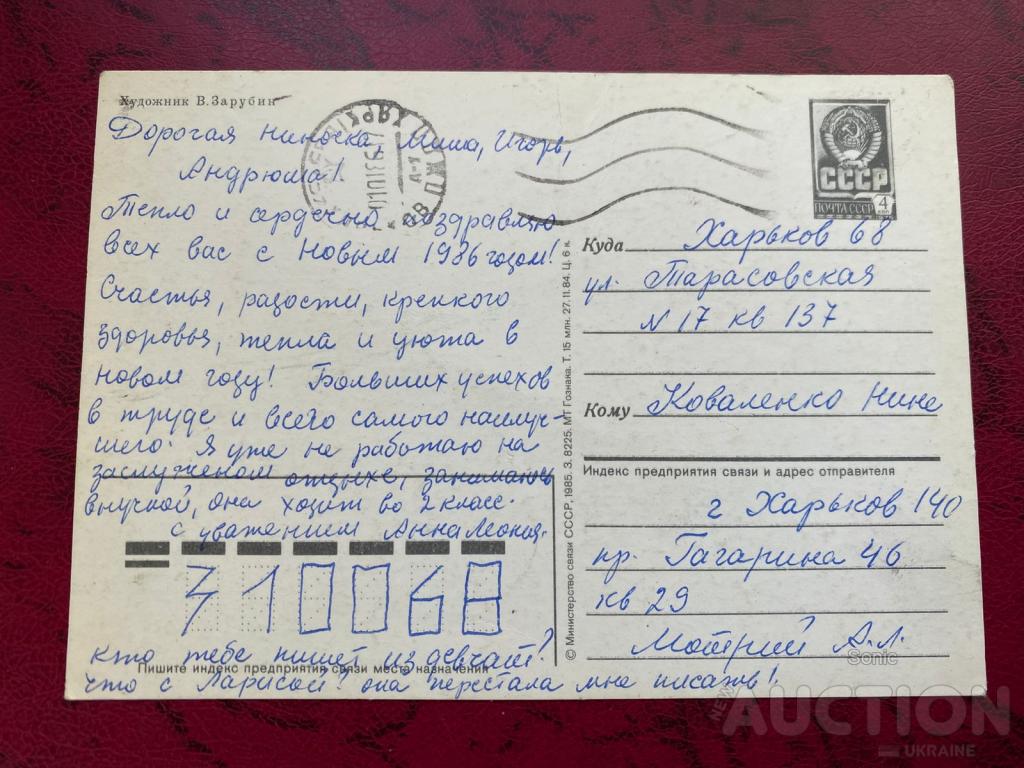 Художник В.Зарубин
Дорогая Ниночка, Миша, Игорь,
Андрюша!
Тепло и сердечно поздравляю
всех вас с Новым 1986 годом!
Счастья, радости, крепкого
здоровья, тепла и уюта в
новом году! Больших успехов
в труде и всего самого наилуч-
шего. Я уже не работаю на
заслуженом отдыхе, занимаюсь
внучкой, она ходит во 2 класс.
с уважением Анна Леонид.
310068
кто тебе пишет из девчат?
Пишите индекс предприятия связи места назначения
что с Ларисой? она перестала мне писать!
© Министерство связи СССР, 1985. З. 8225. МТ Гознака. Т. 15 млн. 27.11.84. Ц. 6 к.
СССР
ПОЧТА СССР 4
Куда Харьков 68
ул. Тарасовская
N 17 кв 137
Кому Коваленко Нине
Индекс предприятия связи и адрес отправителя
г Харьков 140
пр. Гагарина 46
кв 29
Мотрий А.Л.
Sonic
NEW AUCTION
UKRAINE